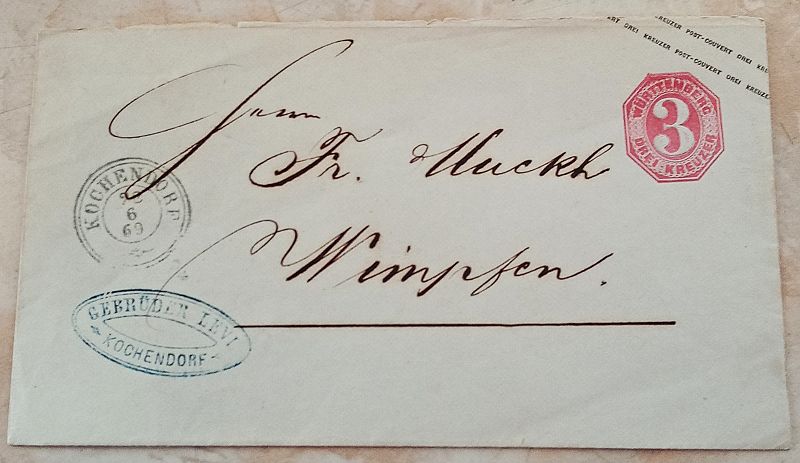 KREUZER POST-COUVERT DREI KRE
ERT DREI KREUZER POST-COUVERT DREI KREUZER
WÜRTTEMBERG
3
DREI-KREUZER
Herrn
Fr. Muckh
Wimpfen.
KOCHENDORF
22
6
69
GEBRÜDER LEVI
KOCHENDORF